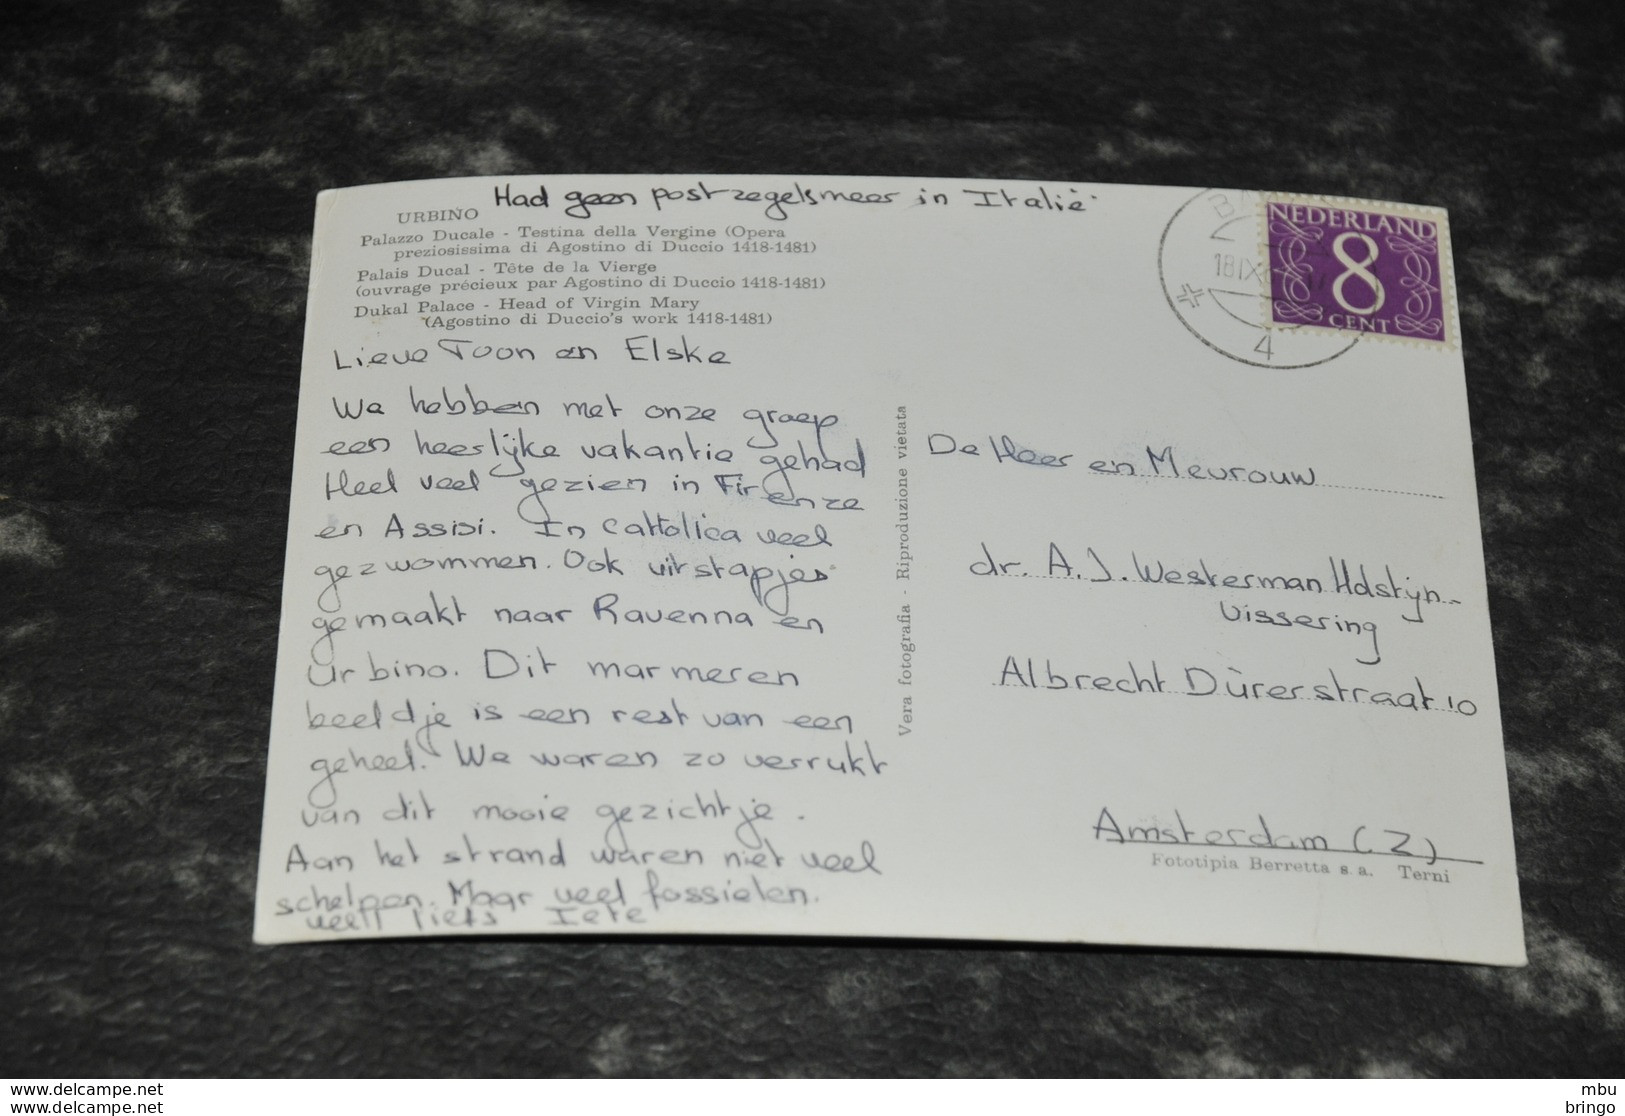 Had geen postzegels meer in Italië.
URBINO
Palazzo Ducale - Testina della Vergine (Opera
preziosissima di Agostino di Duccio 1418-1481)
Palais Ducal - Tête de la Vierge
(ouvrage précieux par Agostino di Duccio 1418-1481)
Dukal Palace - Head of Virgin Mary
(Agostino di Duccio's work 1418-1481)
Lieve Toon en Elske
We hebben met onze groep
een heerlijke vakantie gehad
Heel veel gezien in Firenze
en Assisi. In Cattolica veel
gezwommen. Ook uitstapjes
gemaakt naar Ravenna en
Urbino. Dit marmeren
beeldje is een rest van een
geheel. We waren zo verrukt
van dit mooie gezichtje.
Aan het strand waren niet veel
schelpen. Maar veel fossielen.
veel liefs Iete
Vera fotografia - Riproduzione vietata
NEDERLAND
8
CENT
18 IX
4
De Heer en Mevrouw
dr. A. J. Westerman Holstijn-
Vissering
Albrecht Dürerstraat 10
Amsterdam (Z)
Fototipia Berretta s. a. Terni
www.delcampe.net
www.delcampe.net
mbu
bringo